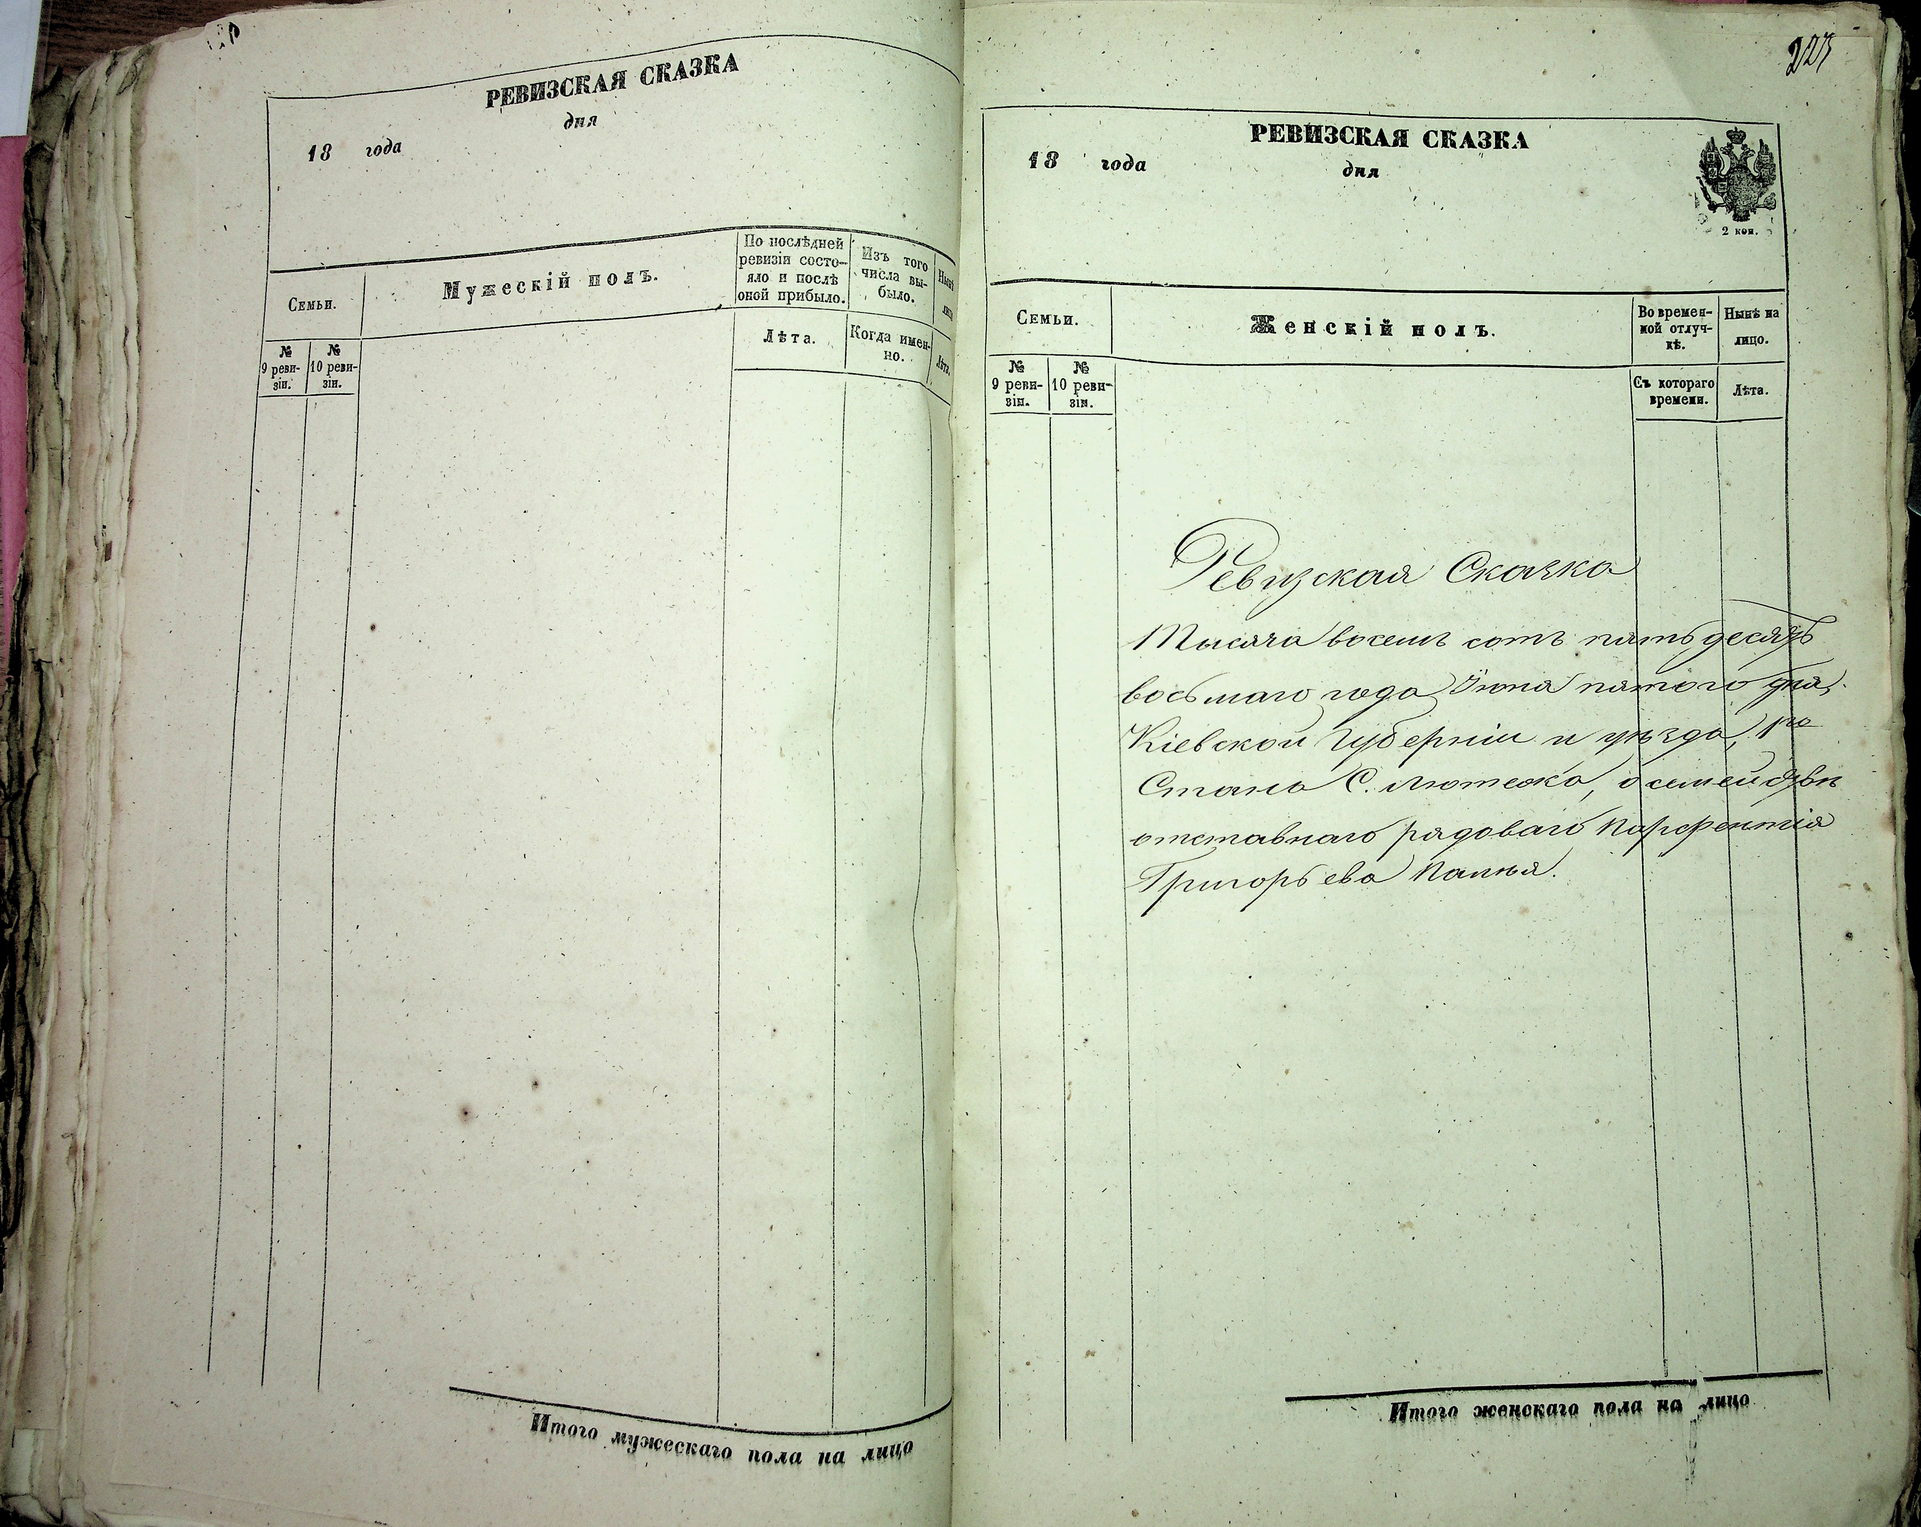 РЕВИЗСКАЯ СКАЗКА
дня
18 года
Семьи.
Мужескій полъ.
По послѣдней
ревизіи состо-
яло и послѣ
оной прибыло.
Изъ того
числа вы-
было.
Нынѣ
№
9 реви-
зіи.
№
10 реви-
зіи.
Лѣта.
Когда имен-
но.
Лѣта.
Итого мужескаго пола на лицо
223
РЕВИЗСКАЯ СКАЗКА
дня
18 года
2 коп.
Семьи.
Женскій полъ.
Во времен-
ной отлуч-
кѣ.
Нынѣ на
лицо.
№
9 реви-
зіи.
№
10 реви-
зіи.
Съ котораго
времени.
Лѣта.
Ревизская Сказка
Тысяча восемь сотъ пятьдесятъ
восьмаго года Іюня пятого дня,
Кіевской Губерніи и уѣзда, 1го
Стана С. Лютежа, о семействѣ
отставнаго рядоваго Парфентія
Григорьева
Итого женскаго пола на лицо